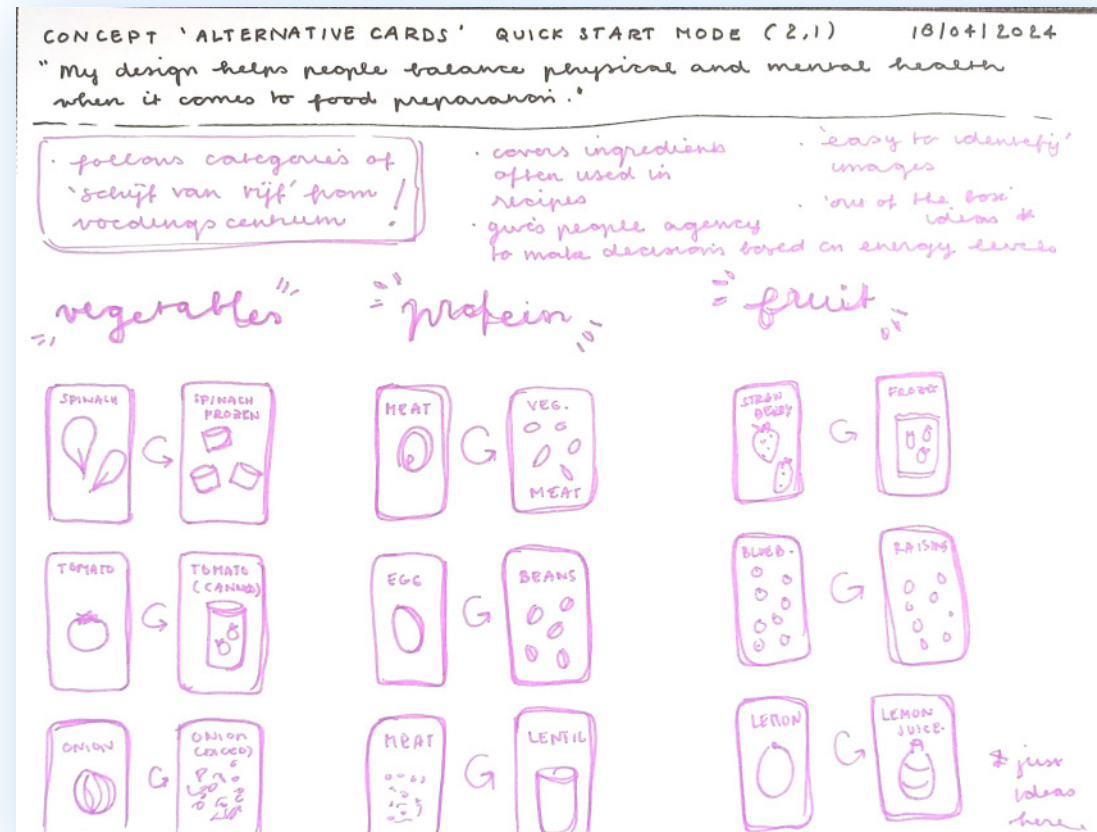 CONCEPT 'ALTERNATIVE CARDS' QUICK START MODE (2,1) 18/04/2024
"My design helps people balance physical and mental health
when it comes to food preparation."
· follows categories of
'schijf van vijf' from
voedingscentrum !
· covers ingredients
often used in
recipes
· gives people agency
to make decisions based on energy levels
· 'easy to identify'
images
· 'out of the box'
ideas *
vegetables
protein
fruit
SPINACH
SPINACH
FROZEN
MEAT
VEG.
MEAT
STRAW
BERRY
FROZEN
TOMATO
TOMATO
(CANNED)
EGG
BEANS
BLUEB.
RAISINS
ONION
ONION
(DICED)
MEAT
LENTIL
LEMON
LEMON
JUICE
* just
ideas
here